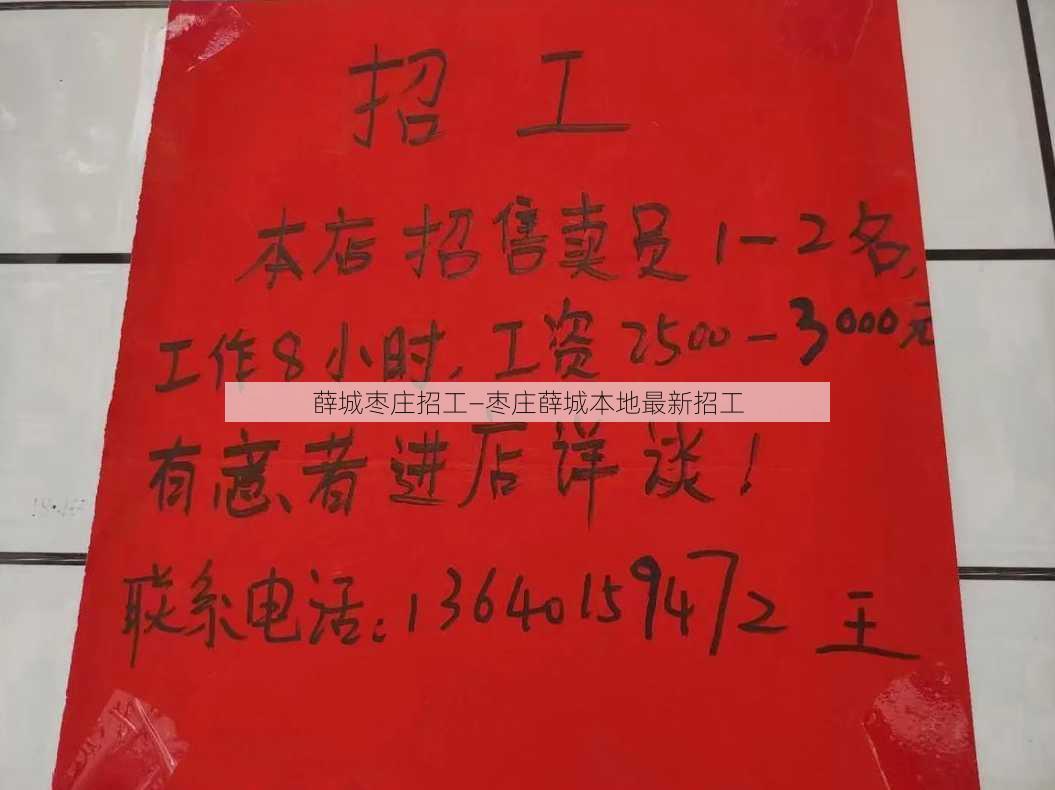 招工
本店招售卖员1-2名,
工作8小时,工资2500-3000元
薛城枣庄招工—枣庄薛城本地最新招工
有意者进店详谈!
联系电话:13640159472 王